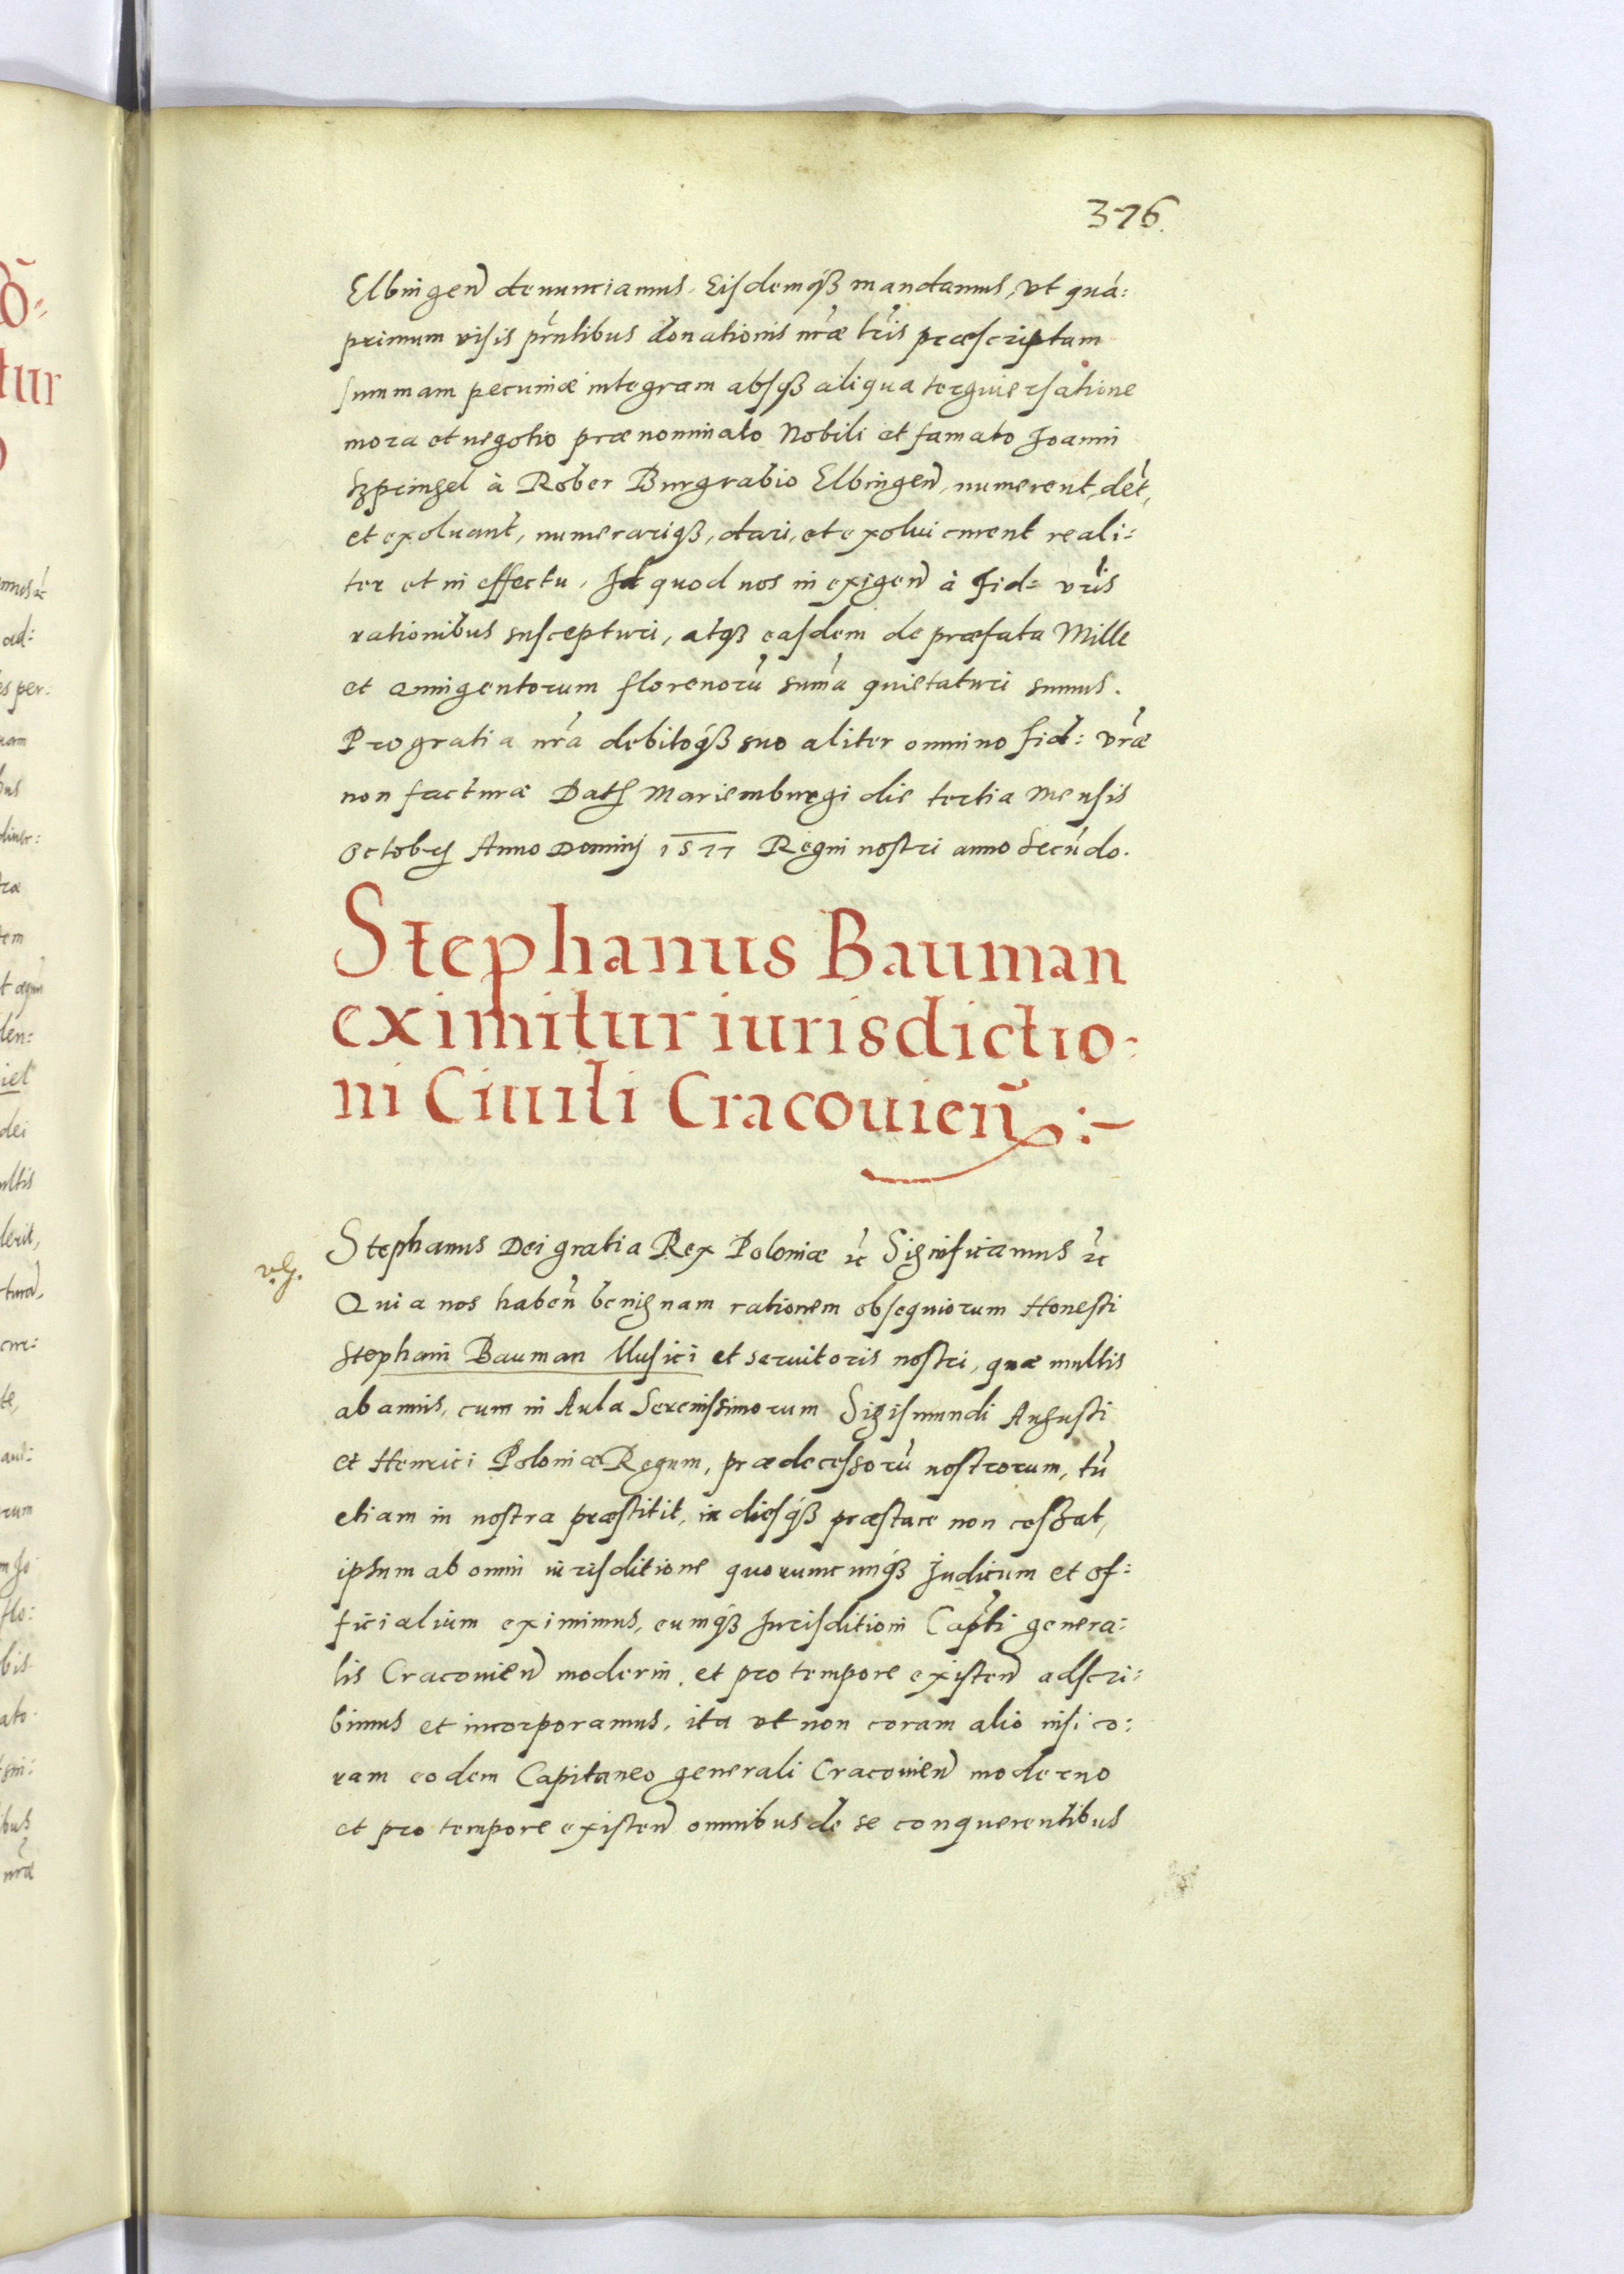 376.
Elbingen̄ denunciamus. Eisdemq́ꝫ mandamus, vt quá:
primum visis pr̃ntibus donationis nr̃æ lr̃is præscriptam
summam pecuniæ integram absqꝫ aliqua terguiersatione
mora et negotio prænominato Nobili et famato Joanni
Szpeingel à Rober Burgrabio Elbingen̄, numerent, dēt,
et exoluant, numerariqꝫ, dari, et exolui curent reali:
ter et in effectu. Id quod nos in exigen̄ à Fid: vr̃is
rationibus suscepturi, atqꝫ easdem de præfata Mille
et Quingentorum florenorū sum̄a quietaturi sumus.
Pro gratia nr̃a debitoq́ꝫ suo aliter omnino Fid: vr̃æ
non facturæ Datꝭ Mariemburgi die tertia Mensis
Octobrꝭ Anno Dominj 1577 Regni nostri anno Secūdo.
Stephanus Bauman
eximitur iurisdictio:
ni Ciuili Cracouien̄ :-
Stephanus Dei gratia Rex Poloniæ ꝛc̃ Significamus ꝛc̃
Quia nos haben̄ benignam rationem obsequiorum Honesti
Stephani Bauman Musici et seruitoris nostri, quæ multis
ab annis, cum in Aula Serenissimorum Sigismundi Augusti
et Henrici Poloniæ Regum, prædecessorū nostrorum, tū
etiam in nostra præstitit, in diesq́ꝫ præstare non cessat,
ipsum ab omni iurisditione quorumcunq́ꝫ Judicum et of:
ficialium eximimus, eumq́ꝫ Jurisditioni Cap̃ti genera:
lis Cracouien̄ moderni, et pro tempore existen̄ adscri:
bimus et incorporamus, ita vt non coram alio nisi co:
ram eodem Capitaneo generali Cracouien̄ moderno
et pro tempore existen̄ omnibus de se conquerentibus